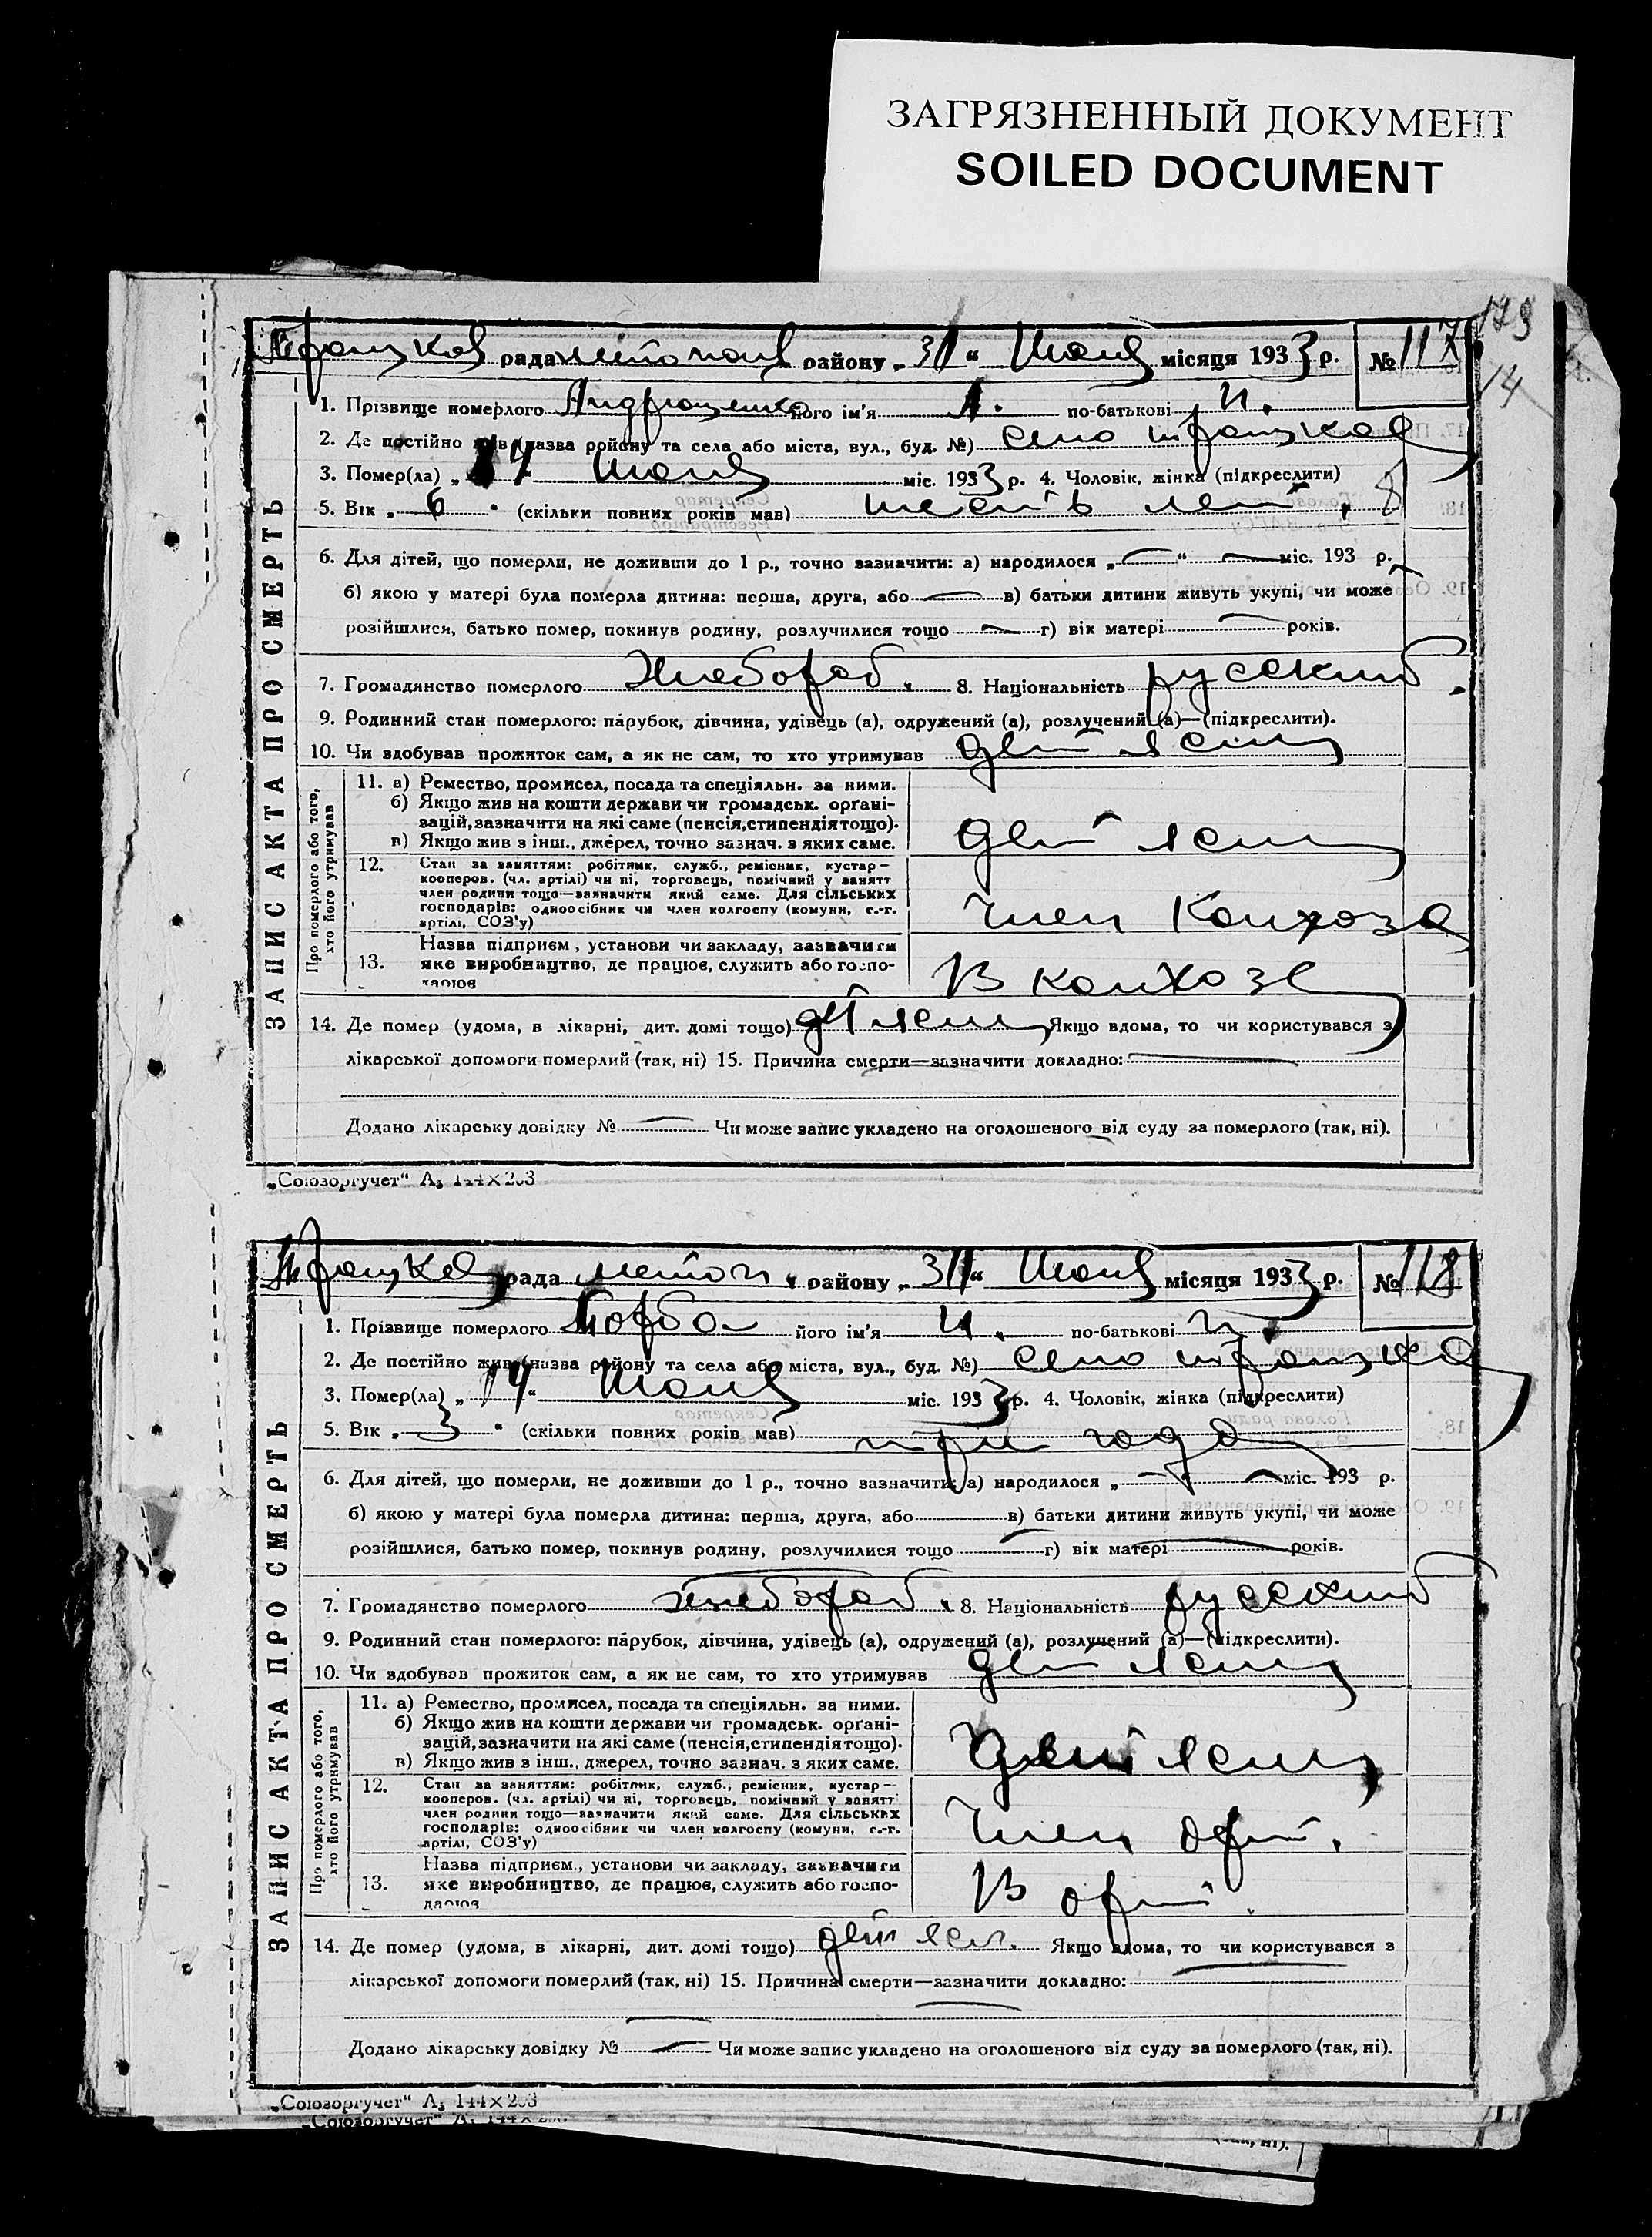 ЗАГРЯЗНЕННЫЙ ДОКУМЕНТ
SOILED DOCUMENT
14
рада району „31“ місяця 1933 р. № 117
1. Прізвище померлого Андрющенко його ім'я А. по-батькові И.
2. Де постійно жив (назва району та села або міста, вул., буд. №) село
3. Помер(ла) „ міс. 1933 р. 4. Чоловік, жінка (підкреслити)
5. Вік „ 6 “ (скільки повних років мав) шесть лет.
6. Для дітей, що померли, не доживши до 1 р., точно зазначити: а) народилося „—“ — міс. 193 р.
б) якою у матері була померла дитина: перша, друга, або — в) батьки дитини живуть укупі, чи може
розійшлися, батько помер, покинув родину, розлучилися тощо — г) вік матері — років.
7. Громадянство померлого хлебороб. 8. Національність русский.
9. Родинний стан померлого: парубок, дівчина, удівець (а), одружений (а), розлучений (а)—(підкреслити).
10. Чи здобував прожиток сам, а як не сам, то хто утримував дет ясли
ЗАПИС АКТА ПРО СМЕРТЬ
Про померлого або того, хто його утримував
11. а) Ремество, промисел, посада та спеціяльн. за ними.
б) Якщо жив на кошти держави чи громадськ. орґані-
зацій, зазначити на які саме (пенсія, стипендія тощо).
в) Якщо жив з інш., джерел, точно зазнач. з яких саме.
дет ясли
12. Стан за заняттям: робітник, служб., ремісник, кустар—
кооперов. (чл. артілі) чи ні, торговець, помічний у занятт
член родини тощо—зазначити який саме. Для сільських
господарів: одноосібник чи член колгоспу (комуни, с.-г.
артілі, СОЗ'у)
Член Колхоза
Назва підприєм., установи чи закладу, зазначити
13. яке виробництво, де працює, служить або госпо-
дарює
В колхозе
14. Де помер (удома, в лікарні, дит. домі тощо) дет ясли Якщо вдома, то чи користувався з
лікарської допомоги померлий (так, ні) 15. Причина смерти—зазначити докладно: —
Додано лікарську довідку № — Чи може запис укладено на оголошеного від суду за померлого (так, ні).
„Союзоргучет“ А₅ 144×203
рада району „31“ місяця 1933 р. № 118
1. Прізвище померлого його ім'я И. по-батькові
2. Де постійно жив (назва району та села або міста, вул., буд. №) село
3. Помер(ла) „14“ міс. 1933 р. 4. Чоловік, жінка (підкреслити)
5. Вік „ 3 “ (скільки повних років мав) три года
6. Для дітей, що померли, не доживши до 1 р., точно зазначити: а) народилося „— — міс. 193 р.
б) якою у матері була померла дитина: перша, друга, або в) батьки дитини живуть укупі, чи може
розійшлися, батько помер, покинув родину, розлучилися тощо — г) вік матері — років.
7. Громадянство померлого хлебороб. 8. Національність русский
9. Родинний стан померлого: парубок, дівчина, удівець (а), одружений (а), розлучений (а)—(підкреслити).
10. Чи здобував прожиток сам, а як не сам, то хто утримував дет ясли
ЗАПИС АКТА ПРО СМЕРТЬ
Про померлого або того, хто його утримував
11. а) Ремество, промисел, посада та спеціяльн. за ними.
б) Якщо жив на кошти держави чи громадськ. орґані-
зацій, зазначити на які саме (пенсія, стипендія тощо).
в) Якщо жив з інш., джерел, точно зазнач. з яких саме.
дет ясли
12. Стан за заняттям: робітник, служб., ремісник, кустар—
кооперов. (чл. артілі) чи ні, торговець, помічний у занятт
член родини тощо—зазначити який саме. Для сільських
господарів: одноосібник чи член колгоспу (комуни, с.-г.
артілі, СОЗ'у)
Член
Назва підприєм., установи чи закладу, зазначити
13. яке виробництво, де працює, служить або госпо-
дарює
В
14. Де помер (удома, в лікарні, дит. домі тощо) дет ясл. Якщо вдома, то чи користувався з
лікарської допомоги померлий (так, ні) 15. Причина смерти—зазначити докладно:
Додано лікарську довідку № — Чи може запис укладено на оголошеного від суду за померлого (так, ні).
„Союзоргучет“ А₅ 144×203
„Союзоргучет“
(так, ні).